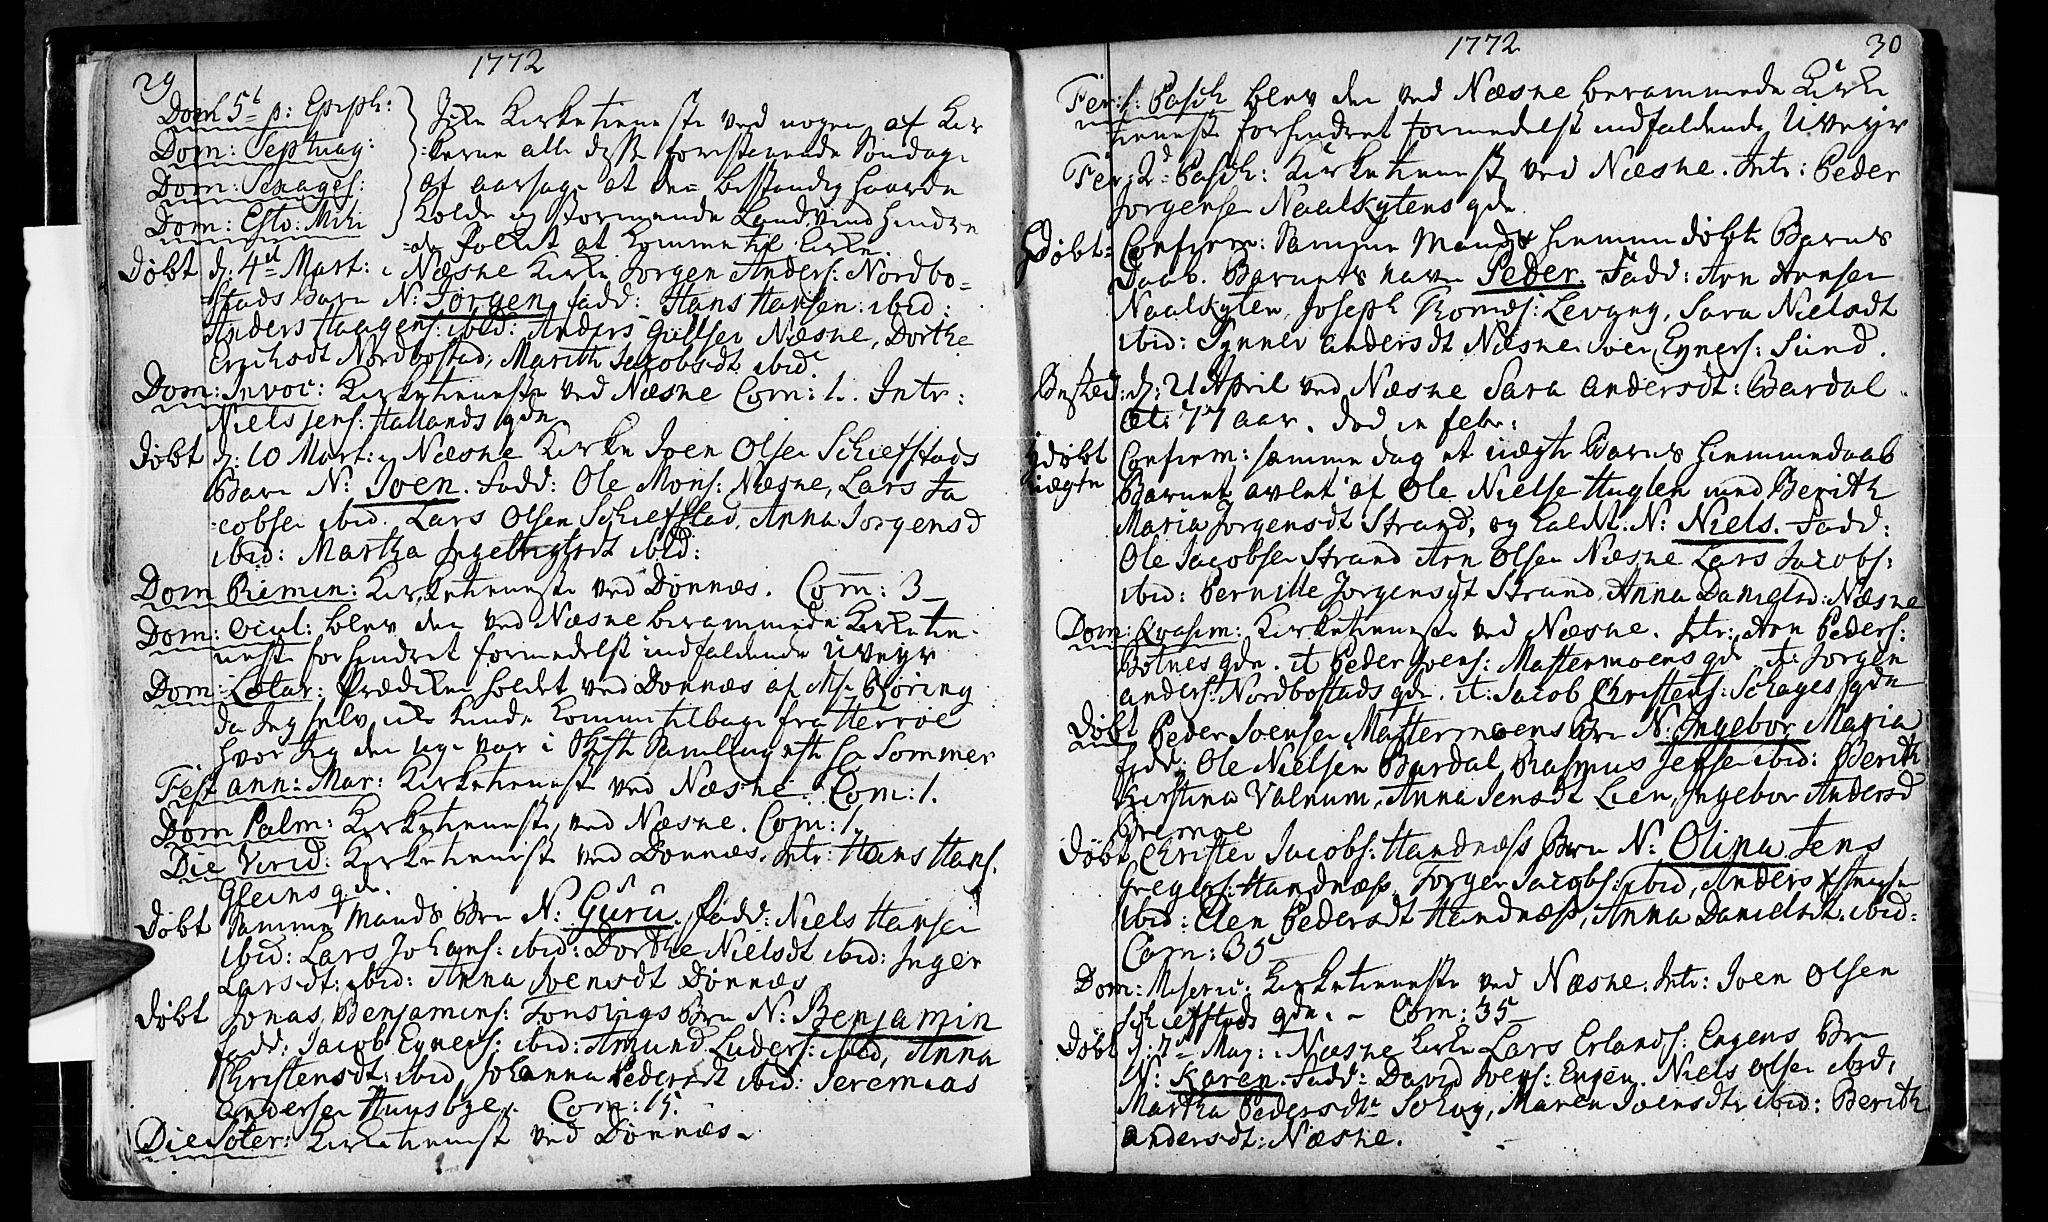 29
1772
Dom 5t p: Epiph:
Dom: Septuag:
Dom: Sexages:
Dom: Esto: Mihi
Ikke Kirketieneste ved nogen af Kir
kerne alle disse forestaaende Søndage
af aarsage at den bestandig haarde
kolde og stormende Landvind hindre
de Folket at komme til Kirke.
Døbt d: 4de Mart: i Næsne Kirke Jørgen Anders: Nordbo=
stads Barn N: Jørgen fadd: Hans Hansen: ibid:
Anders Haagens: ibid: Anders Gullsen Næsne, Dorthe
Erichsdt Nordbostad, Marith Jacobsdt ibid.
Dom: Invoc: Kirketieneste ved Næsne Com: 1. Intr:
Niels Jens: Hallands qde
Døbt d: 10 Mart: i Næsne Kirke Joen Olsen Schiefstads
Barn N: Joen. Fadd: Ole Mons: Næsne, Lars Ja
cobsen ibid. Lars Olsen Schiefstad, Anna Jørgensd
ibid: Martha Ingebrigtsdt ibid:
Dom Remin: Kirketieneste ved Dønnæs. Com: 3
Dom: Ocul: blev den ved Næsne berammede Kirketie-
neste forhindret formedelst indfaldende Uveyr
Dom: Lætar: Prædiken holdet ved Dønnæs af Mr Børing
da jeg selv icke kunde komme tilbage fra Herrøe
hvor jeg den uge var i Skifte Samling efter Hr Sommer
Fest ann: Mar: Kirketieneste ved Næsne Com: 1.
Dom Palm: Kirketieneste ved Næsne. Com: 1.
Die Virid: Kirketieneste ved Dønnæs. Intr: Hans Hans.
Gleins qde.
Døbt Samme Mands Brn N: Guru. fadd: Niels Hansen
ibid: Lars Johans: ibid: Dorthe Nielsdt ibid: Inger
Larsdt: ibid: Anna Joensdt Dønnæs
Døbt Jonas Benjamins: Tonsings Brn N: Benjamin
fadd: Jacob Eyners: ibid: Amund Luders: ibid, Anna
Christensdt: ibid Johanna Pedersdt ibid: Jeremias
Andersen Huusbye. Com: 15.
Die Soter: Kirketieneste ved Dønnæs.
1772
30
Fer: 1: Pasch blev den ved Næsne berammede Kirke
tieneste forhindret formedelst indfaldende Uveyr
Fer: 2d Pasch: Kirketieneste ved Næsne. Intr: Peder
Jørgensen Naalskytens qde
Døbt Confirm: Samme Mands hiemmedøbte Barns
Daab. Barnets navn Peder. Fadd: Arn Arnsen
Naalskyten, Joseph Thoms: Levang, Sara Nielsdt
ibid: Synnev Andersdt Næsne Iver Eyners: Sund.
Begravd: d: 21 April ved Næsne Sara Andersdt: Bardal
æt: 77 aar. død in febr:
døbt
uægte
Confirm: samme dag et uægte Barns hiemmedaab
Barnet avlet af Ole Nielse Huglen med Berith
Maria Jørgensdt Strand, og kaldt. N: Niels. Fadd:
Ole Jacobsen Strand Arn Olsen Næsne Lars Jacobs:
ibid: Pernille Jørgensdt Strand, Anna Danielsd: Næsne
Dom: Qvasim: Kirketieneste ved Næsne. Intr: Arn Peders:
Botnes qde. it Peder Joens: Mastermoens qde it: Jørgen
Anders: Nordbostads qde. it: Jacob Christens: Schages qde
Døbt Peder Joensen Mastermoens Brn N: Ingebor Maria
fadd: Ole Nielsen Bardal, Rasmus Jensen ibid: Berith
Kirstina Valnum, Anna Jensdt Lien, Ingebor Andersd
Bremnæ
Døbt Christen Jacobs: Handnæss Brn N: Olina Jens
Gregers: Handnæss, Torger Jacobs: ibid, Anders
ibid: Elen Pedersdt Handnæss, Anna Danielsdt. ibid:
Com: 35
Dom: Miseric: Kirketieneste ved Næsne. Intr: Joen Olsen
Schiefstads qde. - Com: 35
Døbt d: 7de Maj: i Næsne Kirke Lars Erlands: Engens Brn
N: Karen. Fadd: David Joens: Engen. Niels Olsen ibid,
Martha Pedersdtr Schog, Maren Joensdtr ibid: Berith
Andersdt: Næsne.